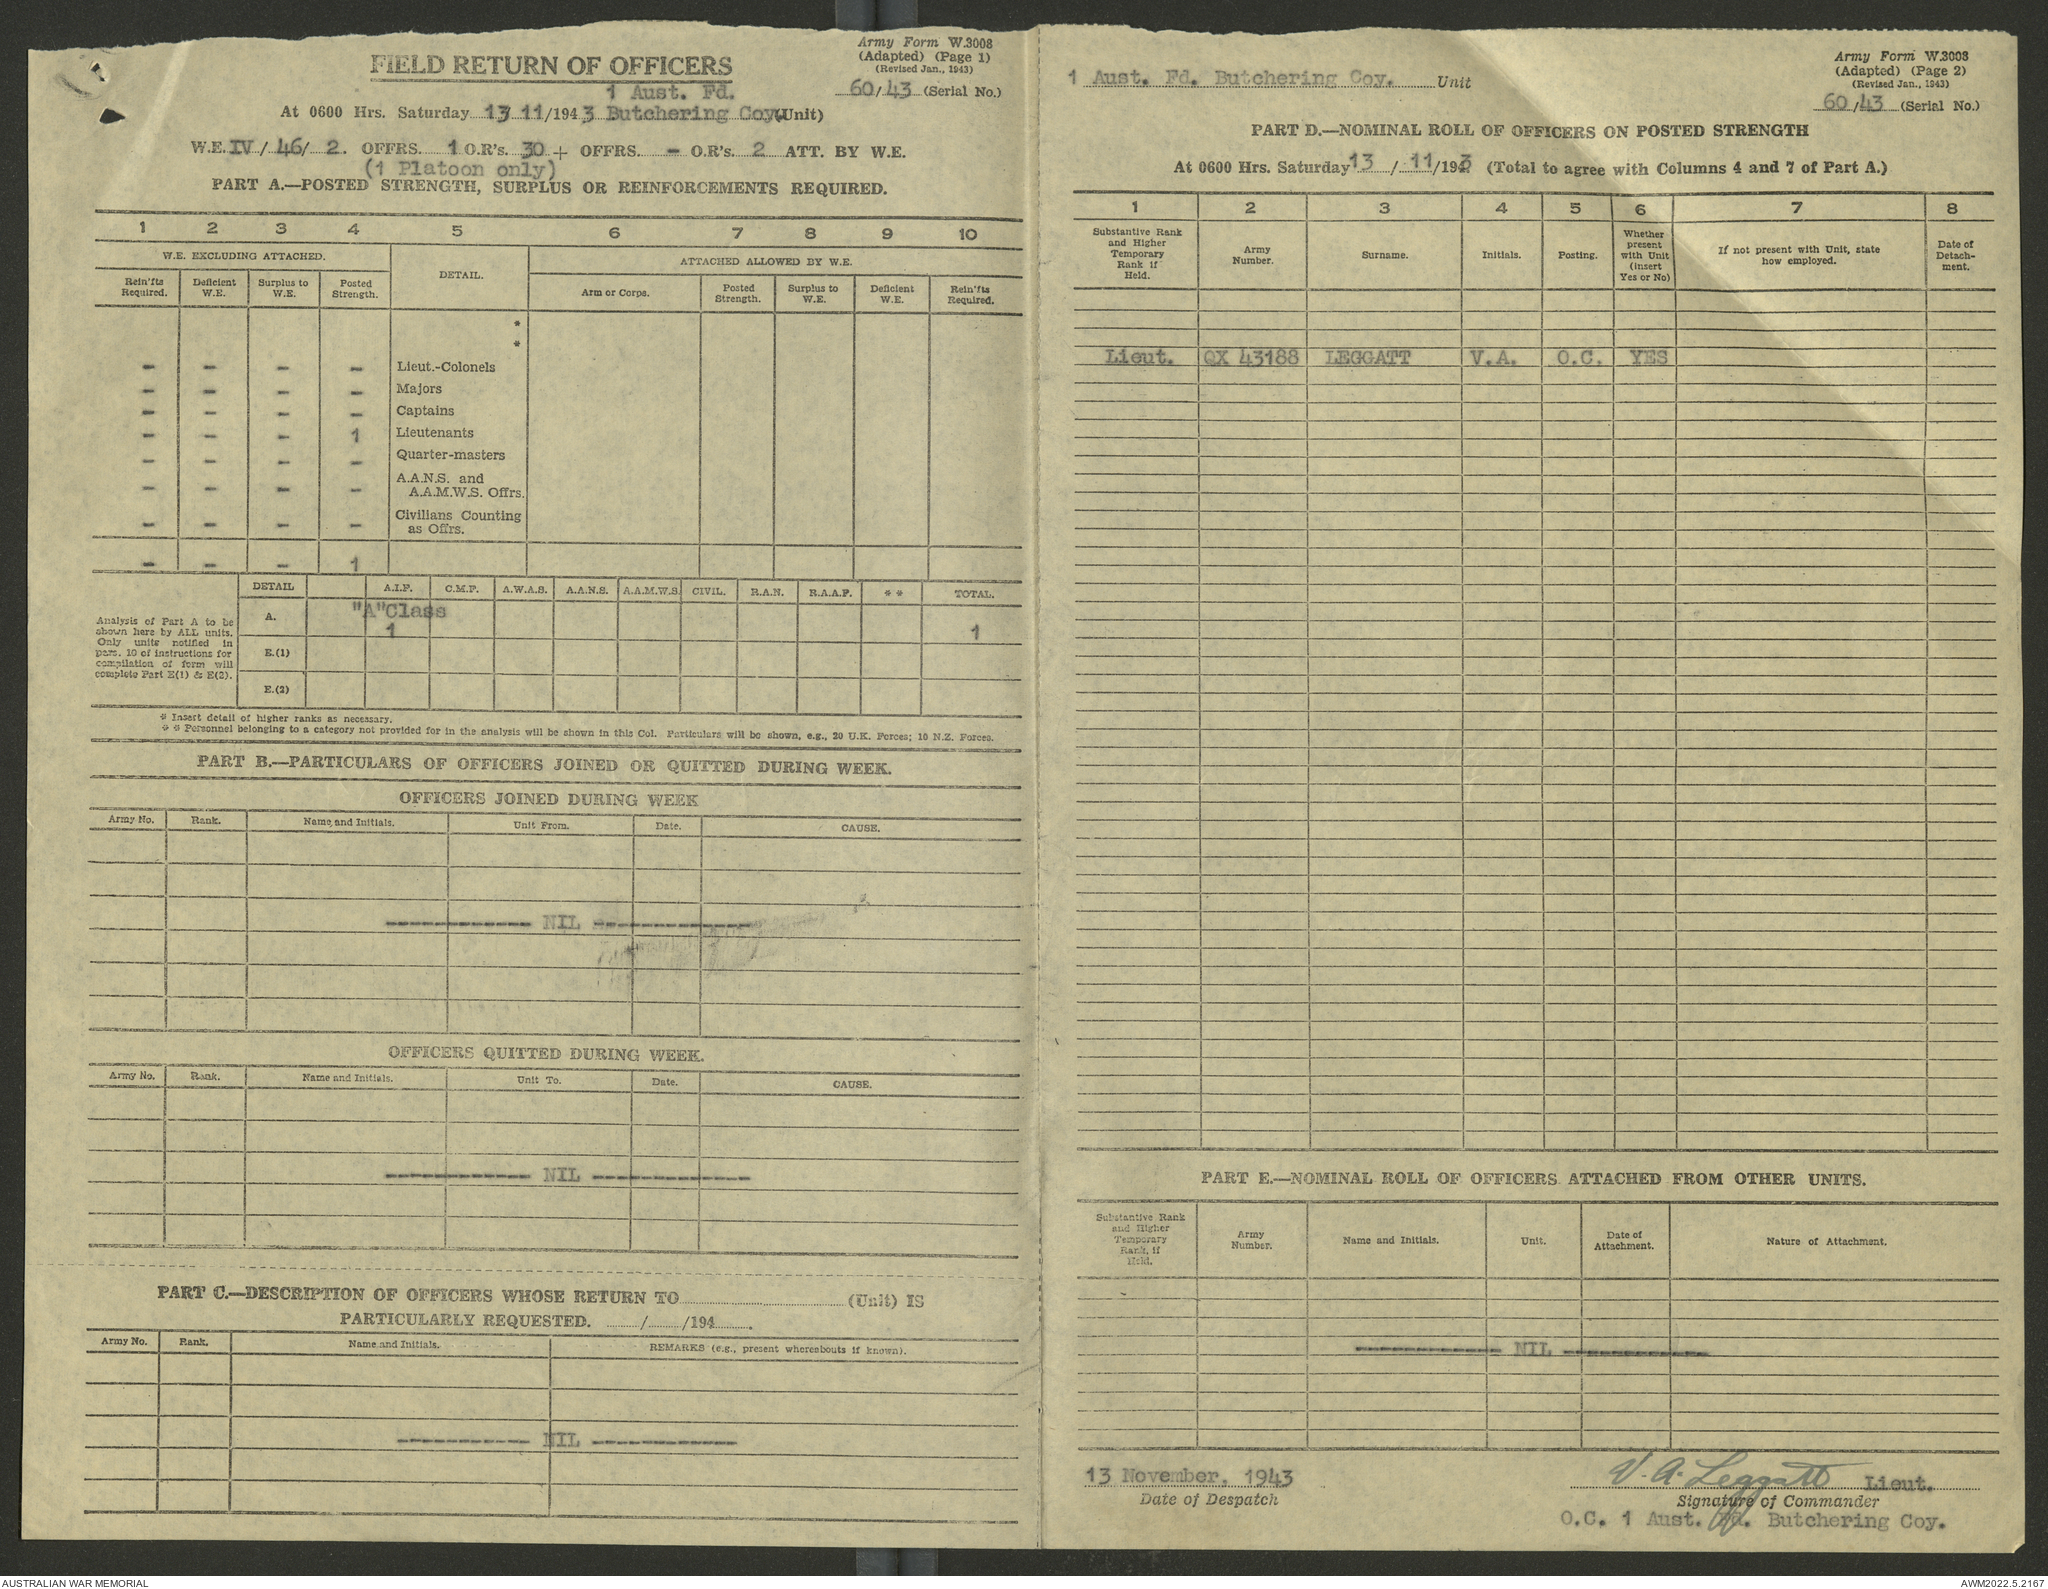 Army Form W.3008
(Adapted) (Page 1)
(Revised Jan., 1943)
FIELD RETURN OF OFFICERS
60/43 (Serial No.)
1 Aust. Fd.
At 0600 Hrs. Saturday 13 11/1943 Butchering Coy. (Unit)
W.E. IV/ 46/ 2. OFFRS. 1 O.R's. 30 + OFFRS. - O.R's. 2 ATT. BY W.E.
(1 Platoon only)
PART A.—POSTED STRENGTH, SURPLUS OR REINFORCEMENTS REQUIRED.
1 2 3 4 5 6 7 8 9 10
W.E. EXCLUDING ATTACHED. DETAIL. ATTACHED ALLOWED BY W.E.
Rein'fts Required. Deficient W.E. Surplus to W.E. Posted Strength. Arm or Corps. Posted Strength. Surplus to W.E. Deficient W.E. Rein'fts Required.
*
*
- - - - Lieut.-Colonels
- - - - Majors
- - - - Captains
- - - 1 Lieutenants
- - - - Quarter-masters
- - - - A.A.N.S. and
A.A.M.W.S. Offrs.
- - - - Civilians Counting
as Offrs.
- - - 1
DETAIL A.I.F. C.M.F. A.W.A.S. A.A.N.S. A.A.M.W.S. CIVIL. R.A.N. R.A.A.F. * * TOTAL.
Analysis of Part A to be
shown here by ALL units.
Only units notified in
para. 10 of instructions for
compilation of form will
complete Part E(1) & E(2).
A. "A"Class
1 1
E.(1)
E.(2)
* Insert detail of higher ranks as necessary.
* * Personnel belonging to a category not provided for in the analysis will be shown in this Col. Particulars will be shown, e.g., 20 U.K. Forces; 10 N.Z. Forces.
PART B.—PARTICULARS OF OFFICERS JOINED OR QUITTED DURING WEEK.
OFFICERS JOINED DURING WEEK
Army No. Rank. Name and Initials. Unit From. Date. CAUSE.
------------ NIL -------------
OFFICERS QUITTED DURING WEEK.
Army No. Rank. Name and Initials. Unit To. Date. CAUSE.
------------ NIL -------------
PART C.—DESCRIPTION OF OFFICERS WHOSE RETURN TO.................... (Unit) IS
PARTICULARLY REQUESTED. ......../......../194........
Army No. Rank. Name and Initials. REMARKS (e.g., present whereabouts if known).
----------- NIL ------------
Army Form W.3008
(Adapted) (Page 2)
(Revised Jan., 1943)
1 Aust. Fd. Butchering Coy. Unit
60/43 (Serial No.)
PART D.—NOMINAL ROLL OF OFFICERS ON POSTED STRENGTH
At 0600 Hrs. Saturday 13 / 11/1943 (Total to agree with Columns 4 and 7 of Part A.)
1 2 3 4 5 6 7 8
Substantive Rank and Higher Temporary Rank if Held. Army Number. Surname. Initials. Posting. Whether present with Unit (insert Yes or No) If not present with Unit, state how employed. Date of Detachment.
Lieut. QX 43188 LEGGATT V.A. O.C. YES
PART E.—NOMINAL ROLL OF OFFICERS ATTACHED FROM OTHER UNITS.
Substantive Rank and Higher Temporary Rank, if Held. Army Number. Name and Initials. Unit. Date of Attachment. Nature of Attachment.
------------ NIL ------------
13 November, 1943
Date of Despatch
V. A. Leggatt Lieut.
Signature of Commander
O.C. 1 Aust. Fd. Butchering Coy.
AUSTRALIAN WAR MEMORIAL
AWM2022.5.2167